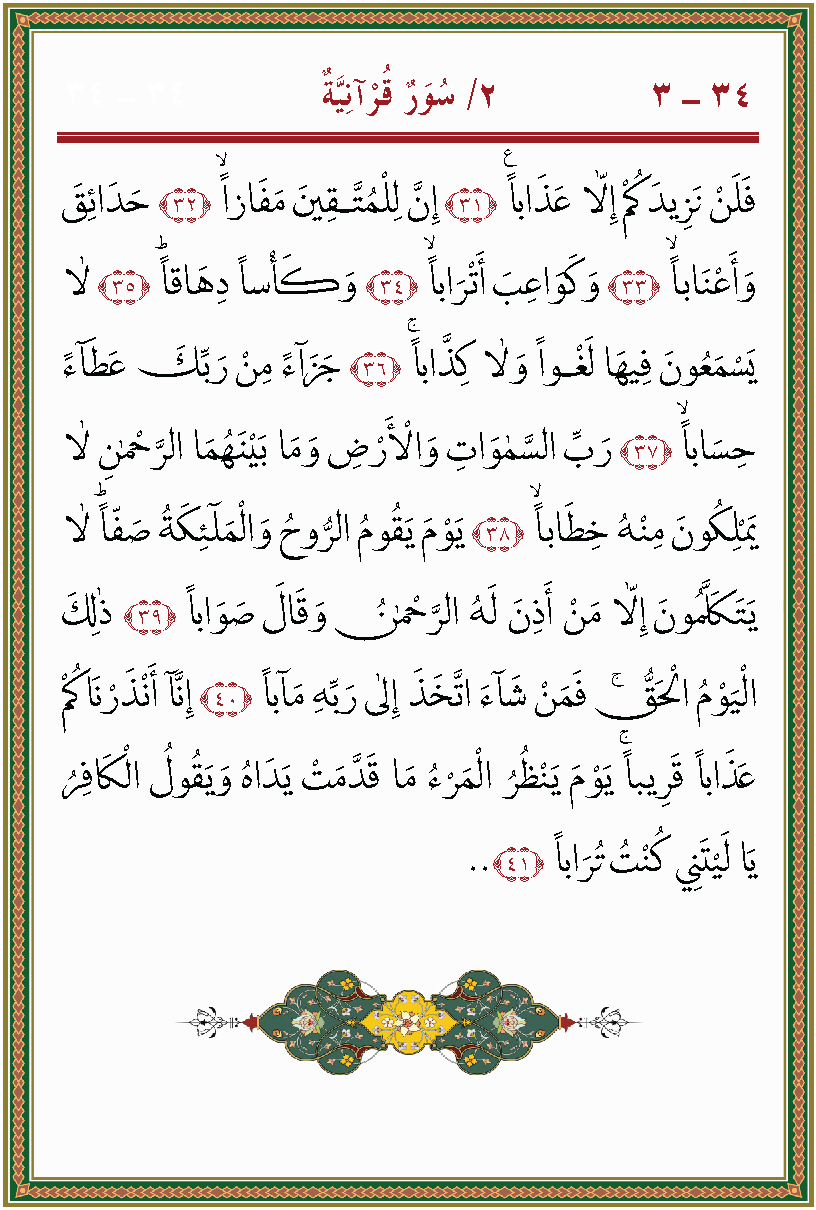 ٣ – ٣٤ ٢/ سُوَرٌ قُرْآنِيَّةٌ ٣٤ – ٣٤
فَلَنْ نَزِيدَكُمْ إِلَّا عَذَاباًۚ ﴿٣١﴾ إِنَّ لِلْمُتَّقِينَ مَفَازاًۙ ﴿٣٢﴾ حَدَائِقَ
وَأَعْنَاباًۙ ﴿٣٣﴾ وَكَوَاعِبَ أَتْرَاباًۙ ﴿٣٤﴾ وَكَأْساً دِهَاقاًؕ ﴿٣٥﴾ لَا
يَسْمَعُونَ فِيهَا لَغْواً وَلَا كِذَّاباًۚ ﴿٣٦﴾ جَزَآءً مِنْ رَبِّكَ عَطَآءً
حِسَاباًۙ ﴿٣٧﴾ رَبِّ السَّمٰوَاتِ وَالْأَرْضِ وَمَا بَيْنَهُمَا الرَّحْمٰنِ لَا
يَمْلِكُونَ مِنْهُ خِطَاباًۙ ﴿٣٨﴾ يَوْمَ يَقُومُ الرُّوحُ وَالْمَلَٓئِكَةُ صَفّاًؕ لَا
يَتَكَلَّمُونَ إِلَّا مَنْ أَذِنَ لَهُ الرَّحْمٰنُ وَقَالَ صَوَاباً ﴿٣٩﴾ ذٰلِكَ
الْيَوْمُ الْحَقُّۚ فَمَنْ شَآءَ اتَّخَذَ إِلٰى رَبِّهِ مَآباً ﴿٤٠﴾ إِنَّآ أَنْذَرْنَاكُمْ
عَذَاباً قَرِيباًۚ يَوْمَ يَنْظُرُ الْمَرْءُ مَا قَدَّمَتْ يَدَاهُ وَيَقُولُ الْكَافِرُ
يَا لَيْتَنِي كُنْتُ تُرَاباً ﴿٤١﴾..